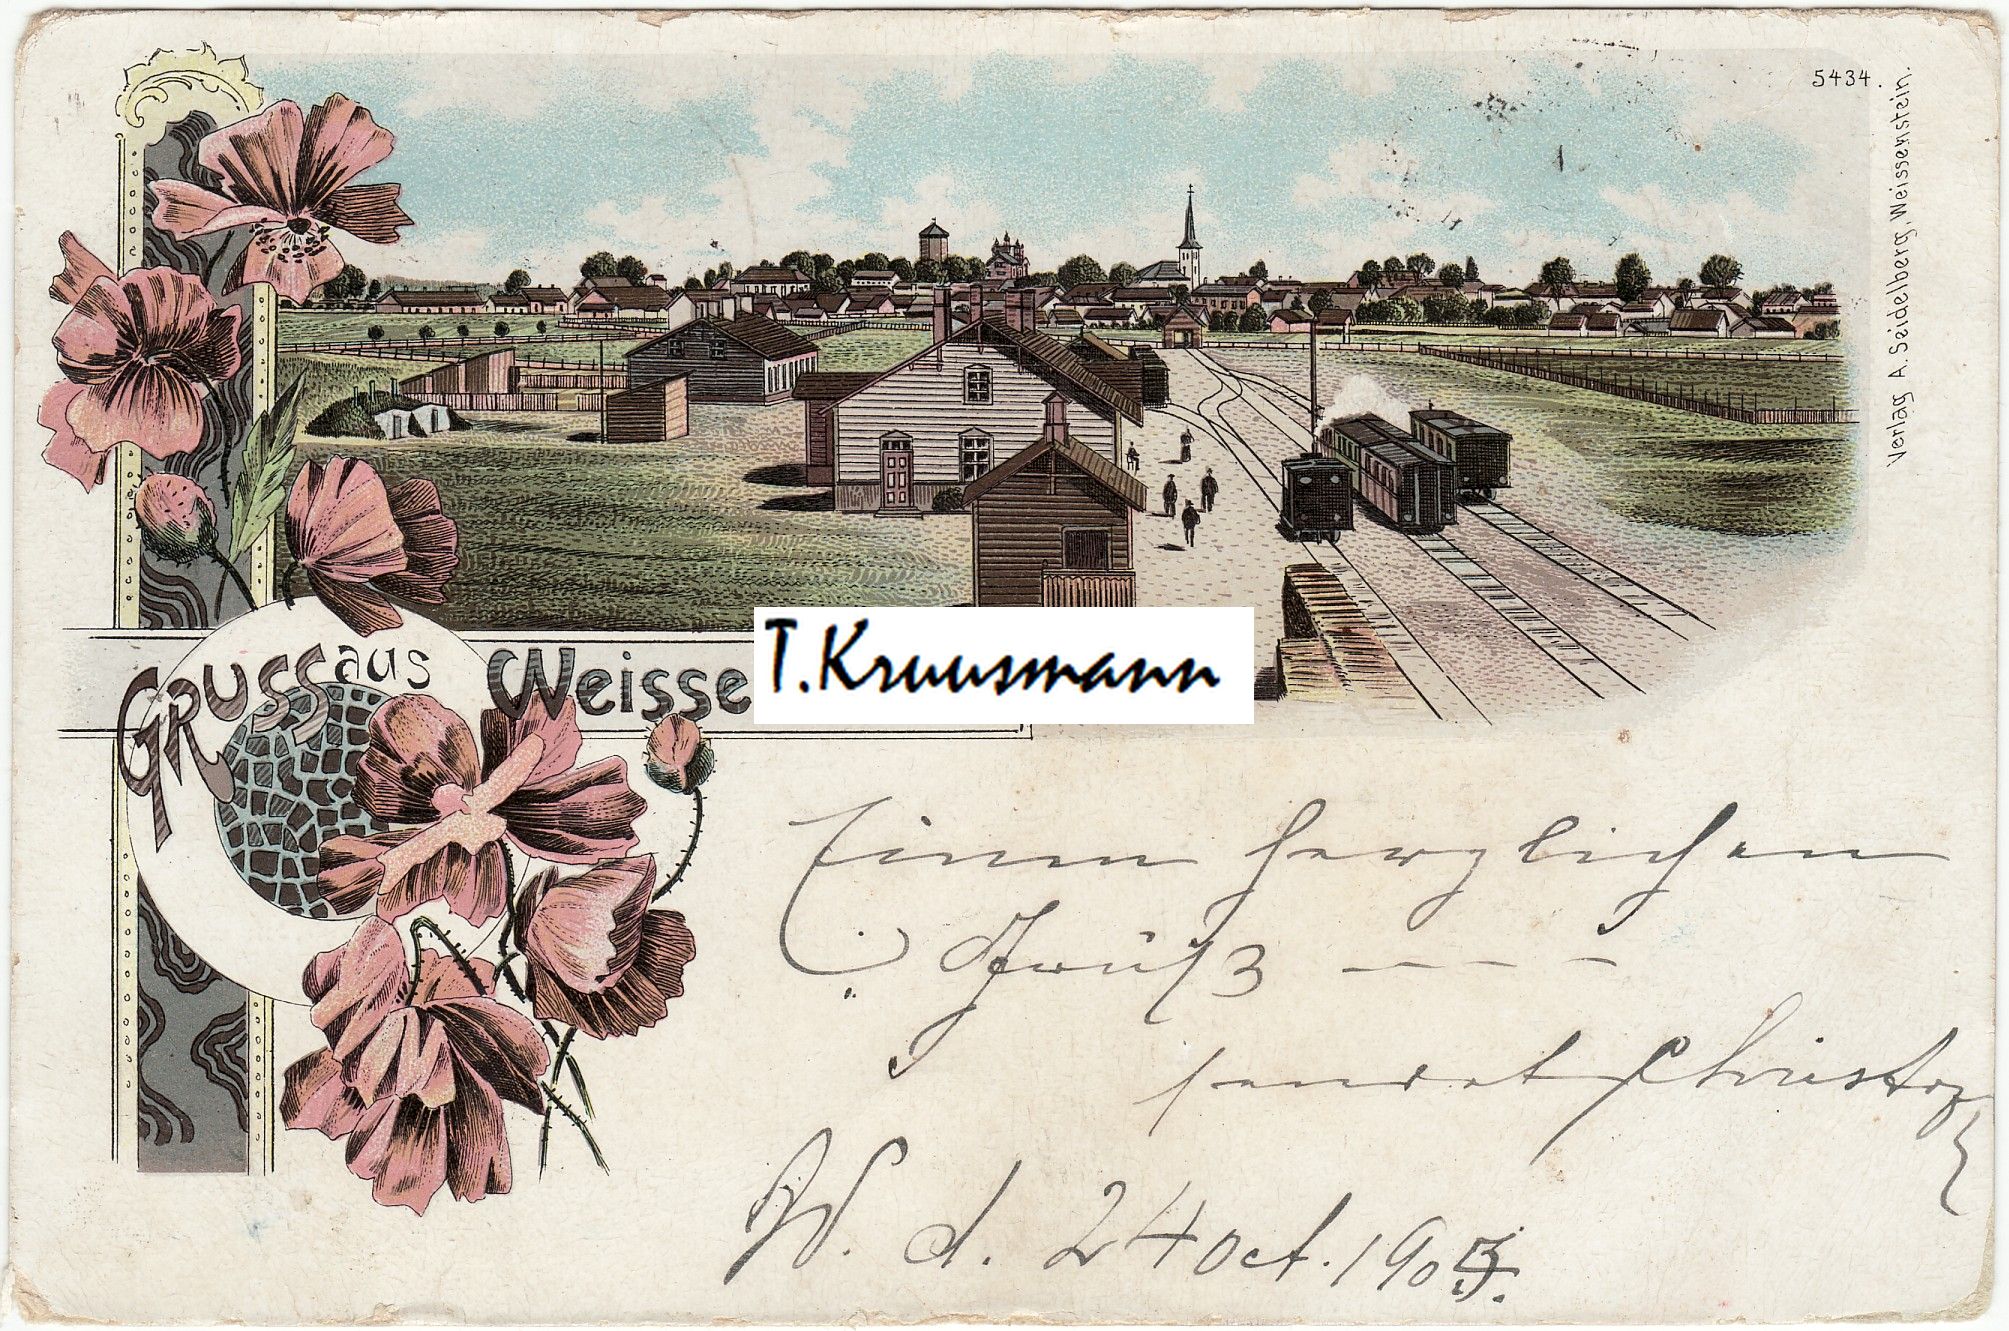 5434.
Verlag A. Seidelberg, Weissenstein.
Gruss aus Weisse
T.Kruusmann
Einen herzlichen
Gruß - - -
sendet
W. d. 24 Oct. 1905.